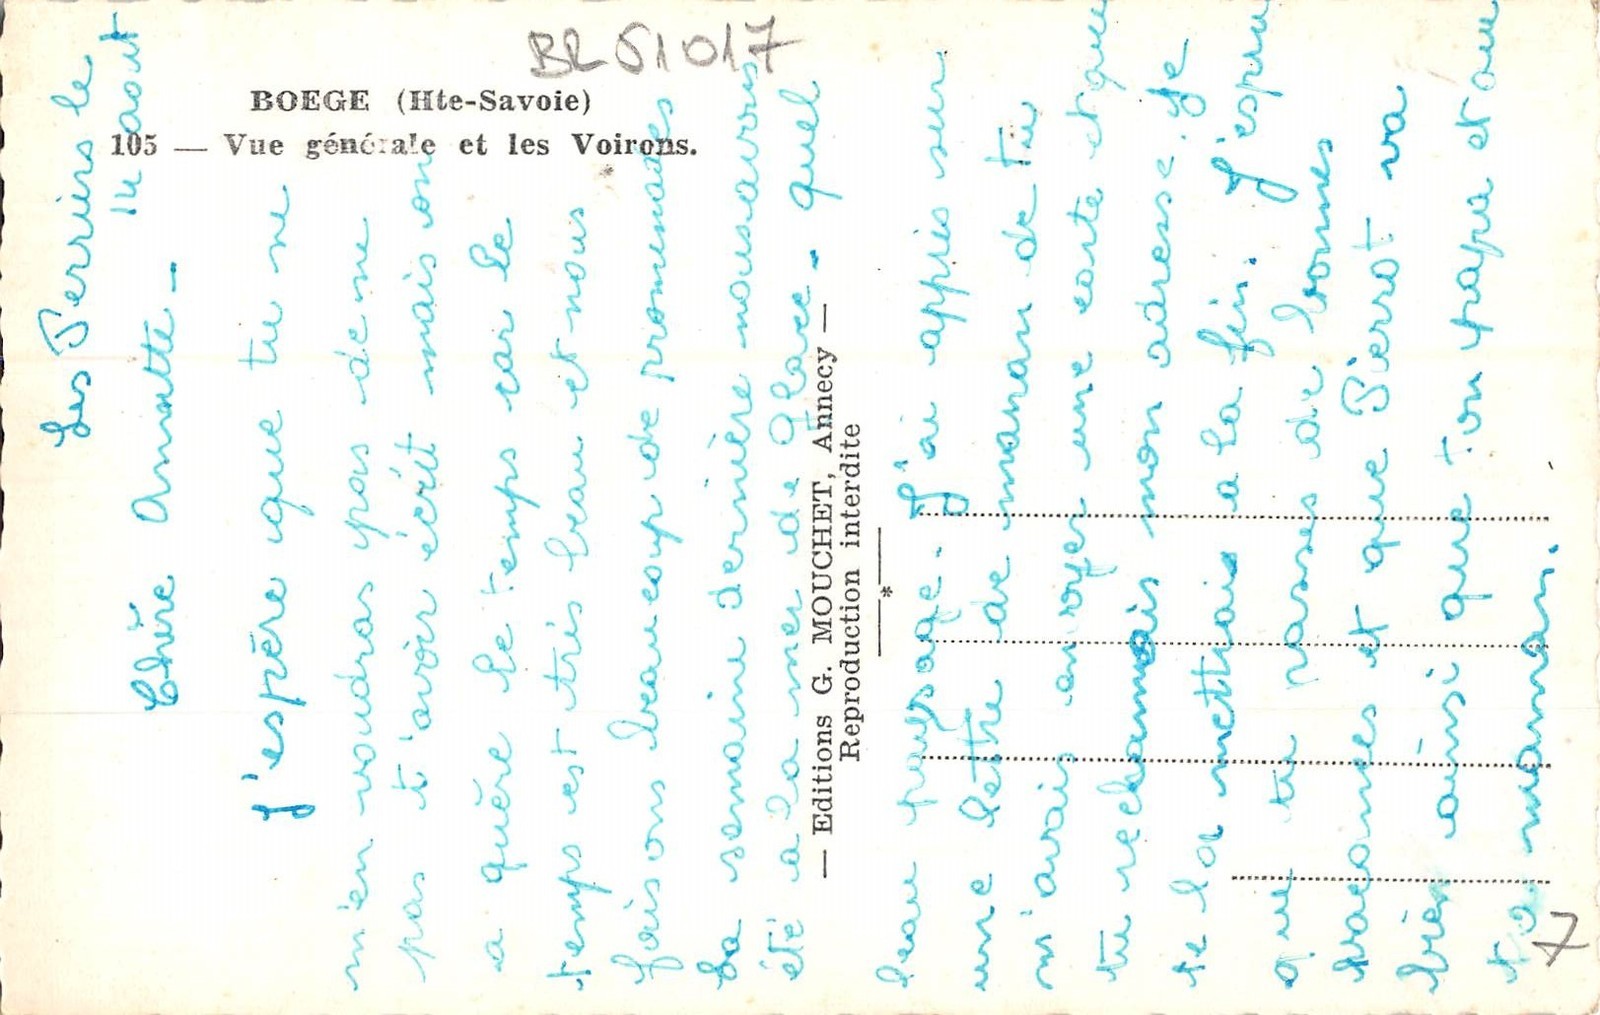 BR 51017
BOEGE (Hte-Savoie)
105 — Vue générale et les Voirons.
Les Perriers le
14 aout
Chère Annette —
J'espère que tu ne
m'en voudras pas de ne
pas t'avoir écrit mais on
a guère le temps car le
temps est très beau et nous
faisons beaucoup de promenades
La semaine dernière nous avons
été a la mer de glace - quel
— Editions G. MOUCHET, Annecy —
Reproduction interdite
*
beau paysage. J'ai appris sur
une lettre de maman de tu
m'avais envoyer une carte et que
tu reclamais mon adresse. Je
te la mettrais a la fin. J'espère
que tu passes de bonnes
vacances et que Pierrot va
bien ainsi que ton papa et
ta maman.
7